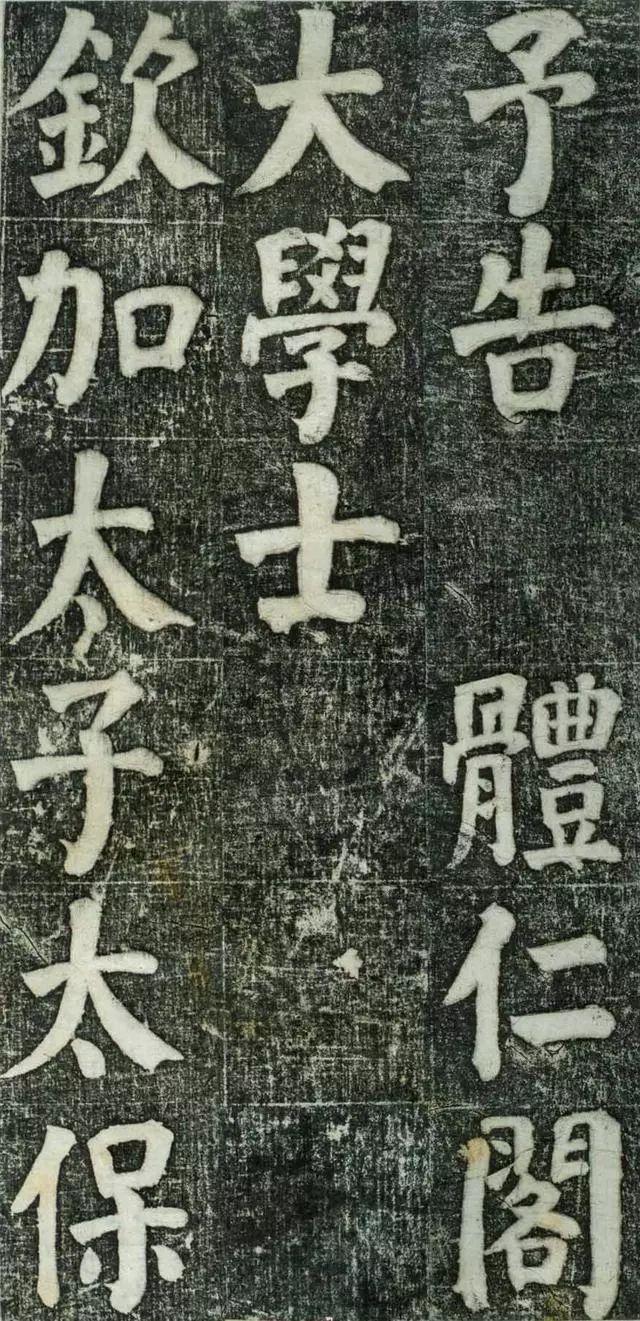 予告體仁閣
大學士
欽加太子太保